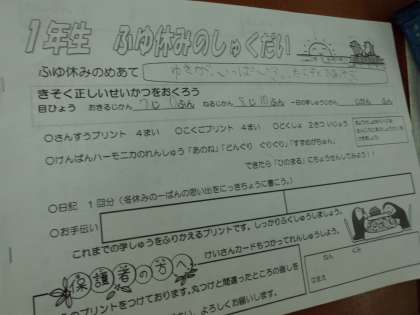 1年生 ふゆ休みのしゅくだい
ふゆ休みのめあて
きそく正しいせいかつをおくろう
目ひょう おきるじかん 7じ 0ふん ねるじかん 8じ 10ぷん 一日の学しゅうじかん じかん ふん
○さんすうプリント 4まい ○こくごプリント 4まい ○どくしょ 2さつ いじょう
○けんばんハーモニカのれんしゅう「あのね」「どんぐり ぐりぐり」「すずめがちゅん」
できたら「ひのまる」にちょうせんしてみよう！！
○日記 1回分（冬休みの一ばんの思い出をにっきちょうに書こう。）
○お手伝い
これまでの学しゅうをふりかえるプリントです。しっかりふくしゅうしましょう。
けいさんカードもつかってれんしゅうしよう。
保護者の方へ
プリントをつけております。丸つけと間違ったところの直しを
よろしくお願いします。
ねん くみ
なまえ